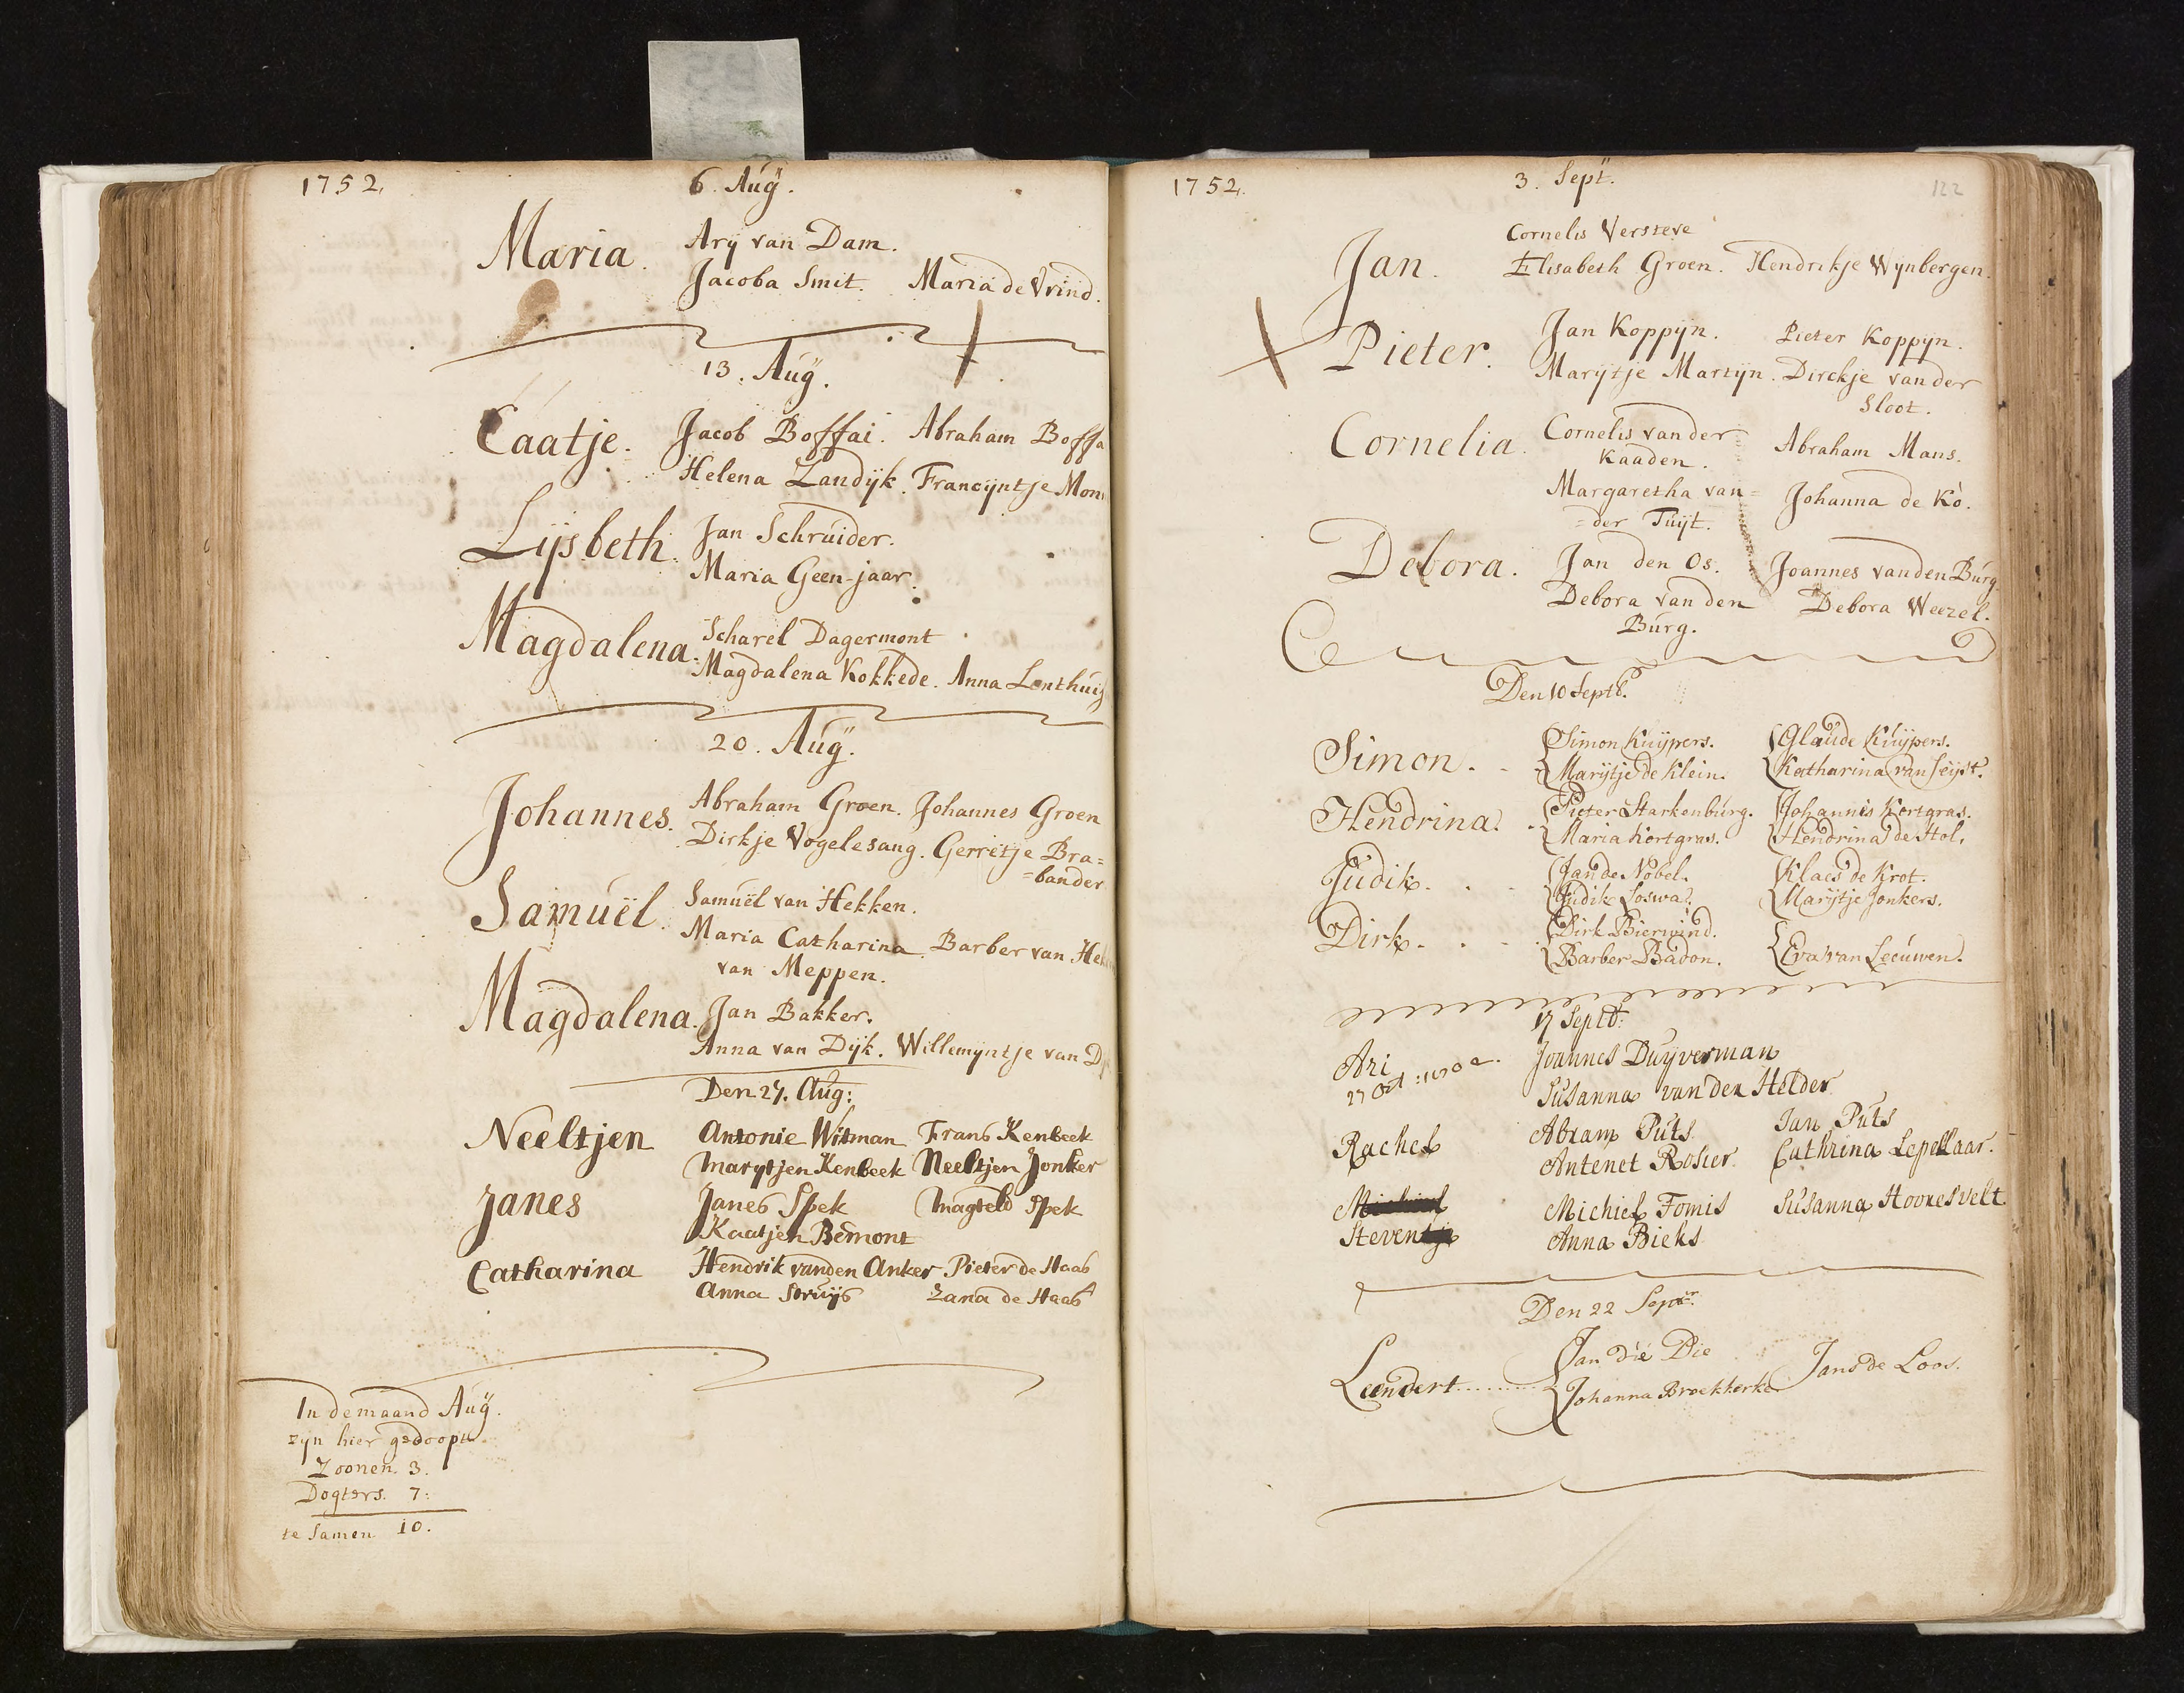 1752.
6. Aug.
Maria.
Ary van Dam.
Jacoba Smit. Maria de Vrind.
13. Aug.
Caatje.
Jacob Boffai. Abraham Boffa
Helena Zandÿk. Francÿntje Mon
Lÿsbeth.
Jan Schruider.
Maria Geen-jaar.
Magdalena.
Scharel Dagermont
Magdalena Kokkede. Anna Lenthuiz
20. Aug.
Johannes.
Abraham Groen. Johannes Groen
Dirkje Vogelesang. Gerretje Bra=
=bander
Samuël.
Samuël van Hekken.
Maria Catharina Barber van Hek
van Meppen.
Magdalena.
Jan Bakker.
Anna van Dÿk. Willemÿntje van D
Den 27. Aug:
Neeltjen
Antonie Witman Frans Kenbeek
Marytjen Kenbeek Neeltjen Jonker
Janes
Janes Spek Magteld Spek
Kaatjen Bemont
Catharina
Hendrik vanden Anker Pieter de Haas
Anna Struijs Zana de Haas
In de maand Aug.
zyn hier gedoopt
Zoonen. 3.
Dogters. 7:
te samen 10.
1752.
3. Sept.
122
Jan.
Cornelis Versteve
Elisabeth Groen. Hendrikje Wÿnbergen.
Pieter.
Jan Koppÿn. Pieter Koppyn.
Marÿtje Martÿn. Dirckje van der
Sloot.
Cornelia.
Cornelis van der= Abraham Mans.
Kaaden.
Margaretha van= Johanna de Kò.
=der Tuÿt.
Debora.
Jan den Os. Joannes vanden Burg
Debora van den Debora Weezel.
Burg.
Den 10 Septb.
Simon.
Simon Kuijpers. Glaude Kuijpers.
Marijtje de Klein. Katharina van Seijst.
Hendrina.
Pieter Starkenburg. Johannis Kortgras.
Maria Kortgras. Hendrina de Hol.
Judik.
Jan de Nobel. Klaes de Krot.
Judik Loswal. Marijtje Jonkers.
Dirk.
Dirk Bierwind.
Barber Badon. Eva van Leeuwen.
17 Septb:
Ari
27 Oct
Joannes Duijverman
Susanna van der Helder
Rachel
Abram Puts Jan Puts
Antenet Rosier Cathrina Lepellaar.
Steven
Michiel Fomis Susanna Hoonesvelt
Anna Bieks
Den 22 Septr.
Leendert
Jan die Bie
Johanna Broekkerke Jans de Loos.